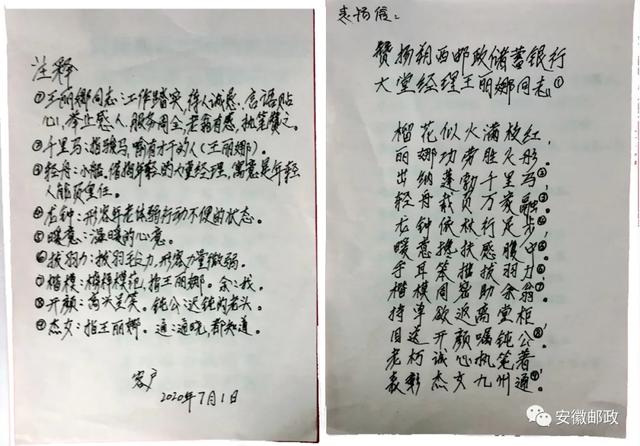 注释
①王丽娜同志:工作踏实,待人诚恳,言语贴
心,举止感人,服务周全,老翁有感,执笔赞之。
②千里马:指骏马,喻有才干的人(王丽娜)。
③轻舟:小船,借指年轻的大堂经理,寓意是年轻
人能负重任。
④龙钟:形容年老体弱行动不便的状态。
⑤暖意:温暖的心意。
⑥拔羽力:拔羽毛力,形容力量微弱。
⑦楷模:榜样模范,指王丽娜。余:我。
⑧开颜:高兴是笑。钝公:迟钝的老头。
⑨杰女:指王丽娜。通:通晓,都知道。
客户
2020年7月1
表扬信:
赞扬朔西邮政储蓄银行
大堂经理王丽娜同志①
榴花似火满枝红,
丽娜功劳胜火彤。
出纳蓬勃千里马②,
轻舟载负万家融③。
龙钟依杖行足步④,
暖意携扶感腹中⑤。
手耳笨拙拔羽力⑥,
楷模周密助余翁⑦。
持单欲返离堂柜
目送开颜嘱钝公⑧。
老朽诚心执笔著
表彰杰女九州通⑨。
安徽邮政